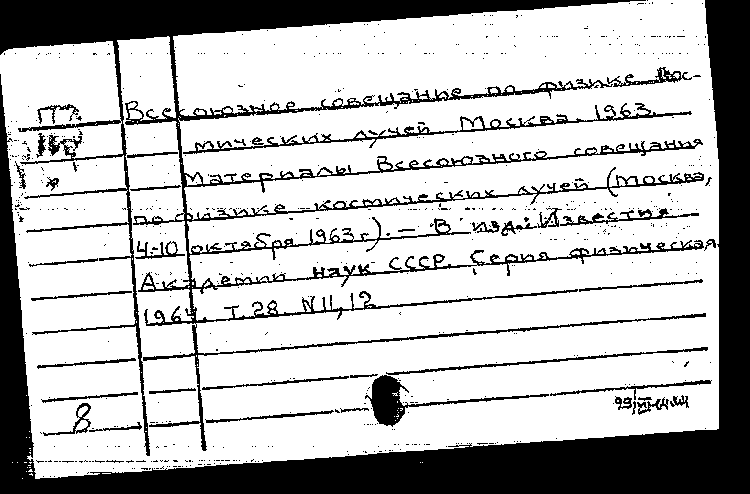 Всесоюзное совещание по физике кос-
мических лучей Москва. 1963.
П
Материалы Всесоюзного совещания
по физике космических лучей (Москва,
4-10 октября 1963 г.). – В изд.: Известия
Академии наук СССР. Серия физическая
1964. Т. 28. N 11, 12
8